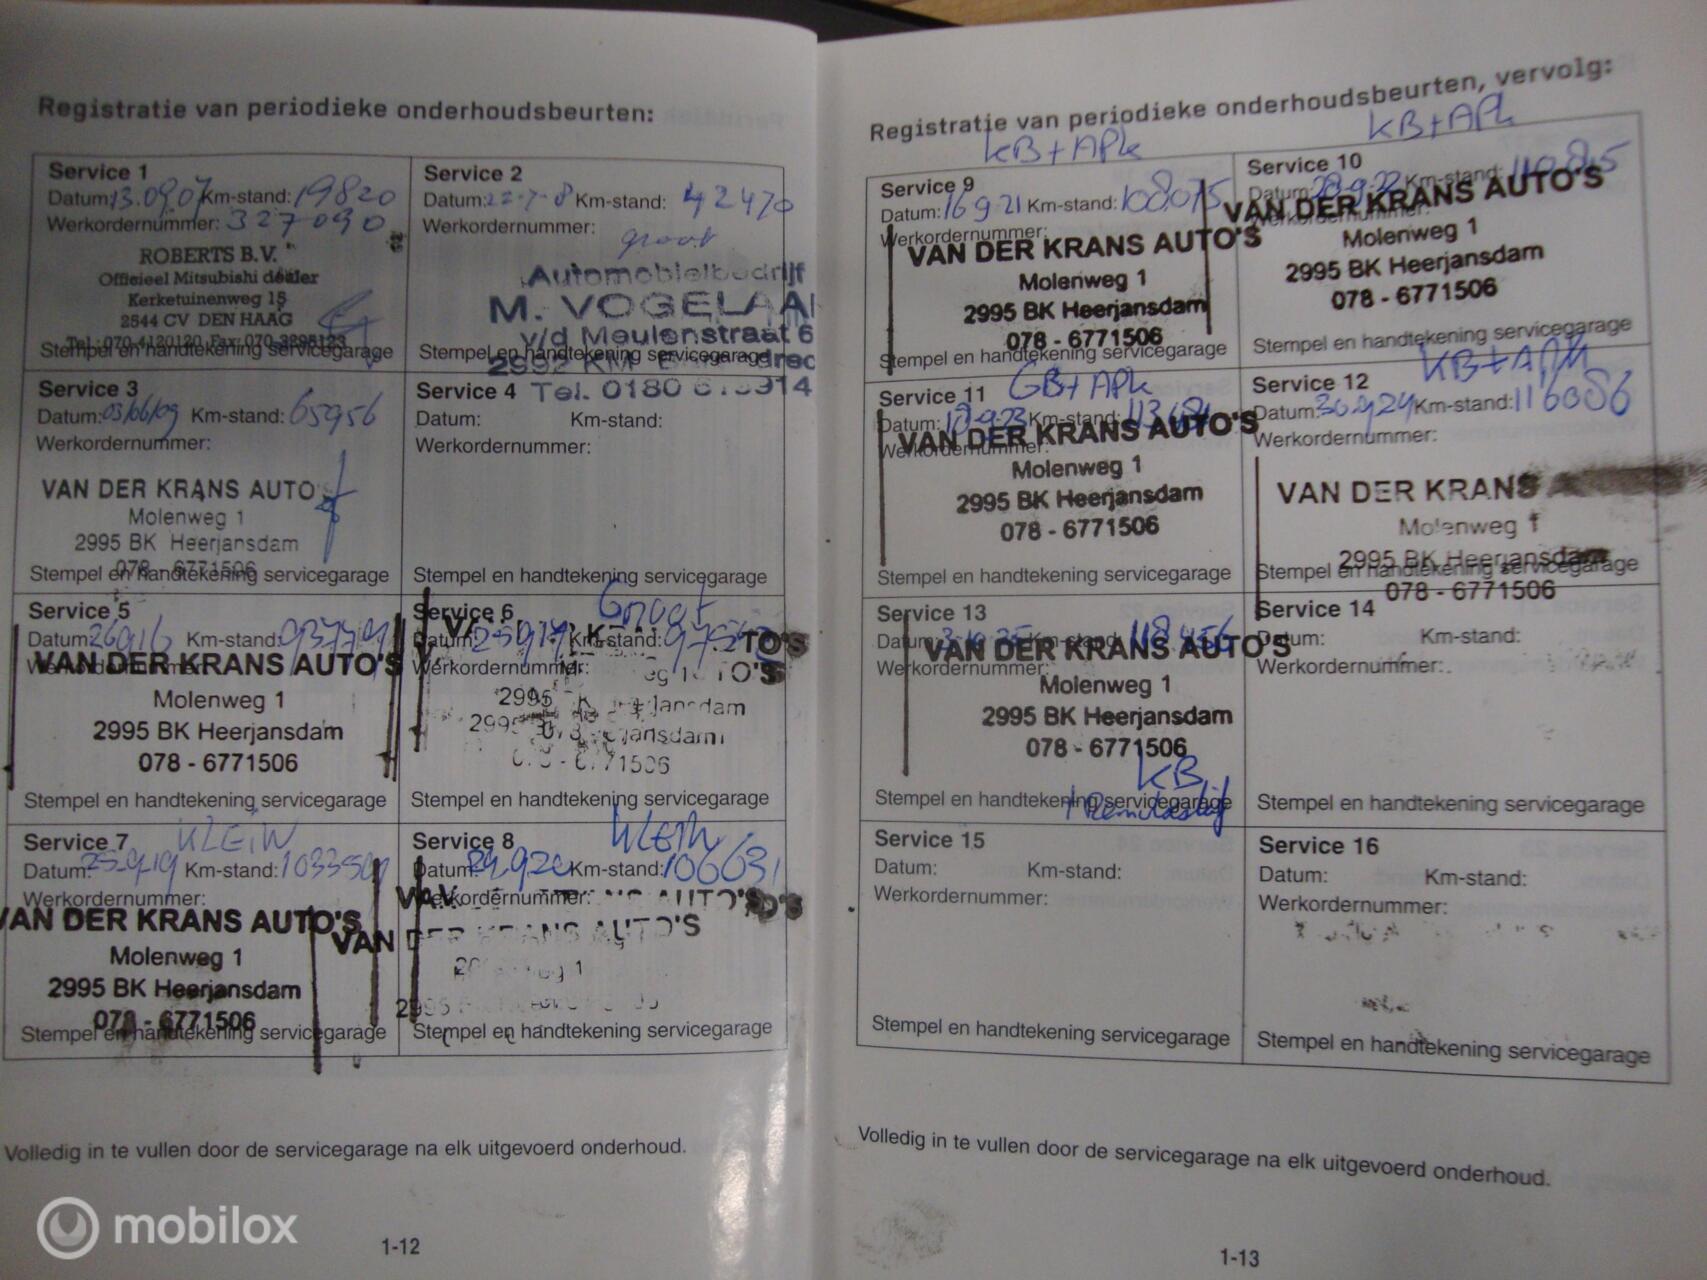 Registratie van periodieke onderhoudsbeurten:
Service 1
Datum: 13.09.07 Km-stand: 19820
Werkordernummer: 327090
ROBERTS B.V.
Officieel Mitsubishi dealer
Kerketuinenweg 15
2544 CV DEN HAAG
Tel.: 070-4120120 Fax: 070-3295123
Stempel en handtekening servicegarage
Service 2
Datum: 22-7-8 Km-stand: 42470
Werkordernummer:
groot
Automobielbedrijf
M. VOGELAA
v/d Meulenstraat 6
2992 KM
Tel. 0180
Stempel en handtekening servicegarage
Service 3
Datum: 03/06/09 Km-stand: 65956
Werkordernummer:
VAN DER KRANS AUTO
Molenweg 1
2995 BK Heerjansdam
078 - 6771506
Stempel en handtekening servicegarage
Service 4
Datum: Km-stand:
Werkordernummer:
Stempel en handtekening servicegarage
Service 5
Datum: Km-stand:
Werkordernummer:
VAN DER KRANS AUTO'S
Molenweg 1
2995 BK Heerjansdam
078 - 6771506
Stempel en handtekening servicegarage
Service 6 Groot
Datum: Km-stand:
Werkordernummer:
Stempel en handtekening servicegarage
Service 7 KLEIN
Datum: 25-9-19 Km-stand:
Werkordernummer:
VAN DER KRANS AUTO'S
Molenweg 1
2995 BK Heerjansdam
078 - 6771506
Stempel en handtekening servicegarage
Service 8 KLEIN
Datum: Km-stand: 106631
Werkordernummer:
VAN DER KRANS AUTO'S
Stempel en handtekening servicegarage
Volledig in te vullen door de servicegarage na elk uitgevoerd onderhoud.
1-12
Registratie van periodieke onderhoudsbeurten, vervolg:
KB + APK
Service 9
Datum: 16 9-21 Km-stand: 108.075
Werkordernummer:
VAN DER KRANS AUTO'S
Molenweg 1
2995 BK Heerjansdam
078 - 6771506
Stempel en handtekening servicegarage
KB + APK
Service 10
Datum: Km-stand:
Werkordernummer:
VAN DER KRANS AUTO'S
Molenweg 1
2995 BK Heerjansdam
078 - 6771506
Stempel en handtekening servicegarage
Service 11 GB + APK
Datum: Km-stand:
Werkordernummer:
VAN DER KRANS AUTO'S
Molenweg 1
2995 BK Heerjansdam
078 - 6771506
Stempel en handtekening servicegarage
KB + APK
Service 12
Datum: 30.9.24 Km-stand: 116086
Werkordernummer:
VAN DER KRANS
Molenweg 1
2995 BK Heerjansdam
078 - 6771506
Stempel en handtekening servicegarage
Service 13
Datum: Km-stand: 118456
Werkordernummer:
VAN DER KRANS AUTO'S
Molenweg 1
2995 BK Heerjansdam
078 - 6771506
KB
Stempel en handtekening servicegarage
Service 14
Datum: Km-stand:
Werkordernummer:
Stempel en handtekening servicegarage
Service 15
Datum: Km-stand:
Werkordernummer:
Stempel en handtekening servicegarage
Service 16
Datum: Km-stand:
Werkordernummer:
Stempel en handtekening servicegarage
Volledig in te vullen door de servicegarage na elk uitgevoerd onderhoud.
1-13
mobilox